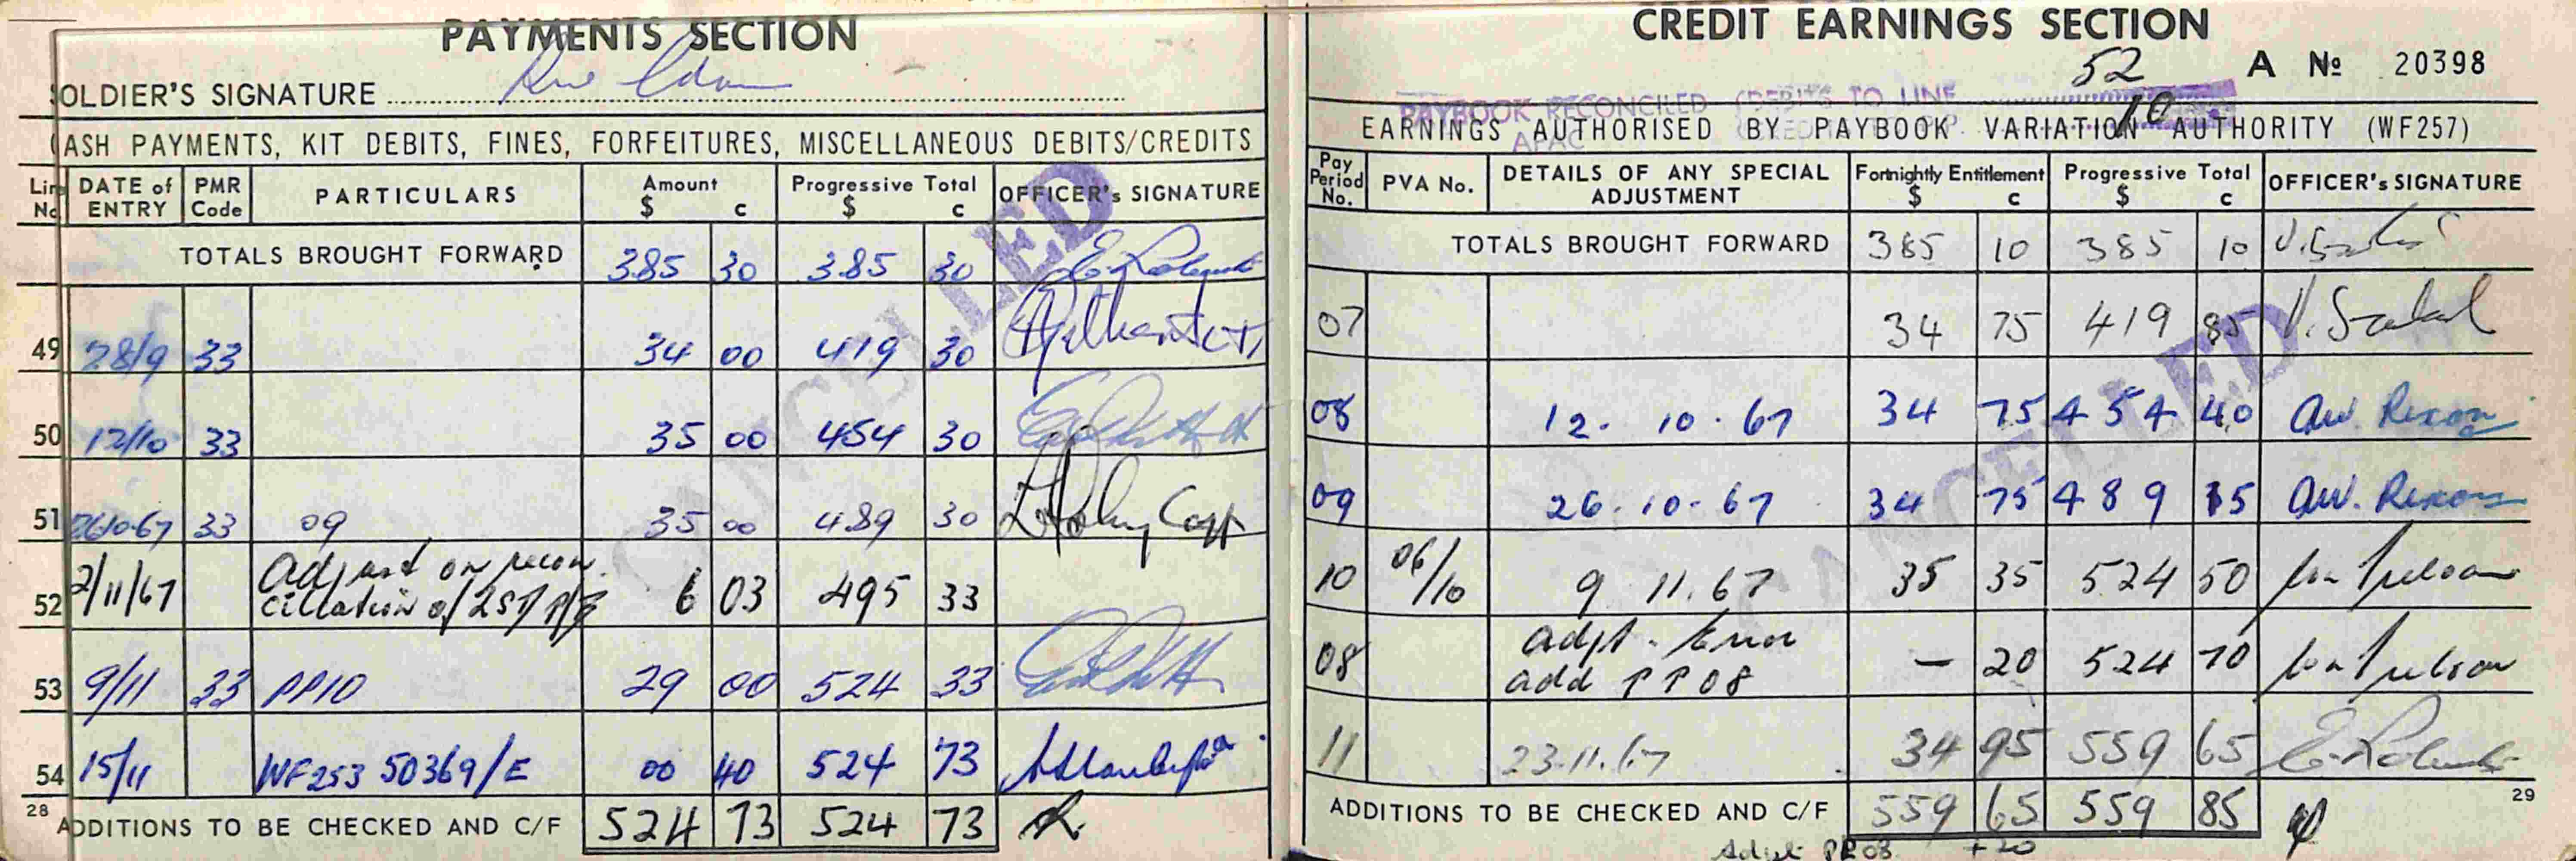 PAYMENTS SECTION
OLDIER'S SIGNATURE
ASH PAYMENTS, KIT DEBITS, FINES, FORFEITURES, MISCELLANEOUS DEBITS/CREDITS
Line No DATE of ENTRY PMR Code PARTICULARS Amount $ c Progressive Total $ c OFFICER's SIGNATURE
TOTALS BROUGHT FORWARD 385 30 385 30
49 28/9 33 34 00 419 30
50 12/10 33 35 00 454 30
51 26.10.67 33 09 35 00 489 30
52 2/11/67 Adjust on recon cillation of 6 03 495 33
53 9/11 33 PP10 29 00 524 33
54 15/11 WF253 50369/E 00 40 524 73
28 ADDITIONS TO BE CHECKED AND C/F 524 73 524 73
CANCELLED
CREDIT EARNINGS SECTION
52 A No 20398
PAYBOOK RECONCILED DEBITS TO LINE
10
APAC
EARNINGS AUTHORISED BY PAYBOOK VARIATION AUTHORITY (WF257)
Pay Period No. PVA No. DETAILS OF ANY SPECIAL ADJUSTMENT Fortnightly Entitlement $ c Progressive Total $ c OFFICER's SIGNATURE
TOTALS BROUGHT FORWARD 385 10 385 10
07 34 75 419 85
08 12. 10. 67 34 75 454 40 AW. Rixon
09 26. 10. 67 34 75 489 15 AW. Rixon
10 06/10 9 11.67 35 35 524 50
08 adjt. Error add PP08 – 20 524 70
11 23.11.67 34 95 559 65
ADDITIONS TO BE CHECKED AND C/F 559 65 559 85
29
Adjst PP08 +20
CANCELLED